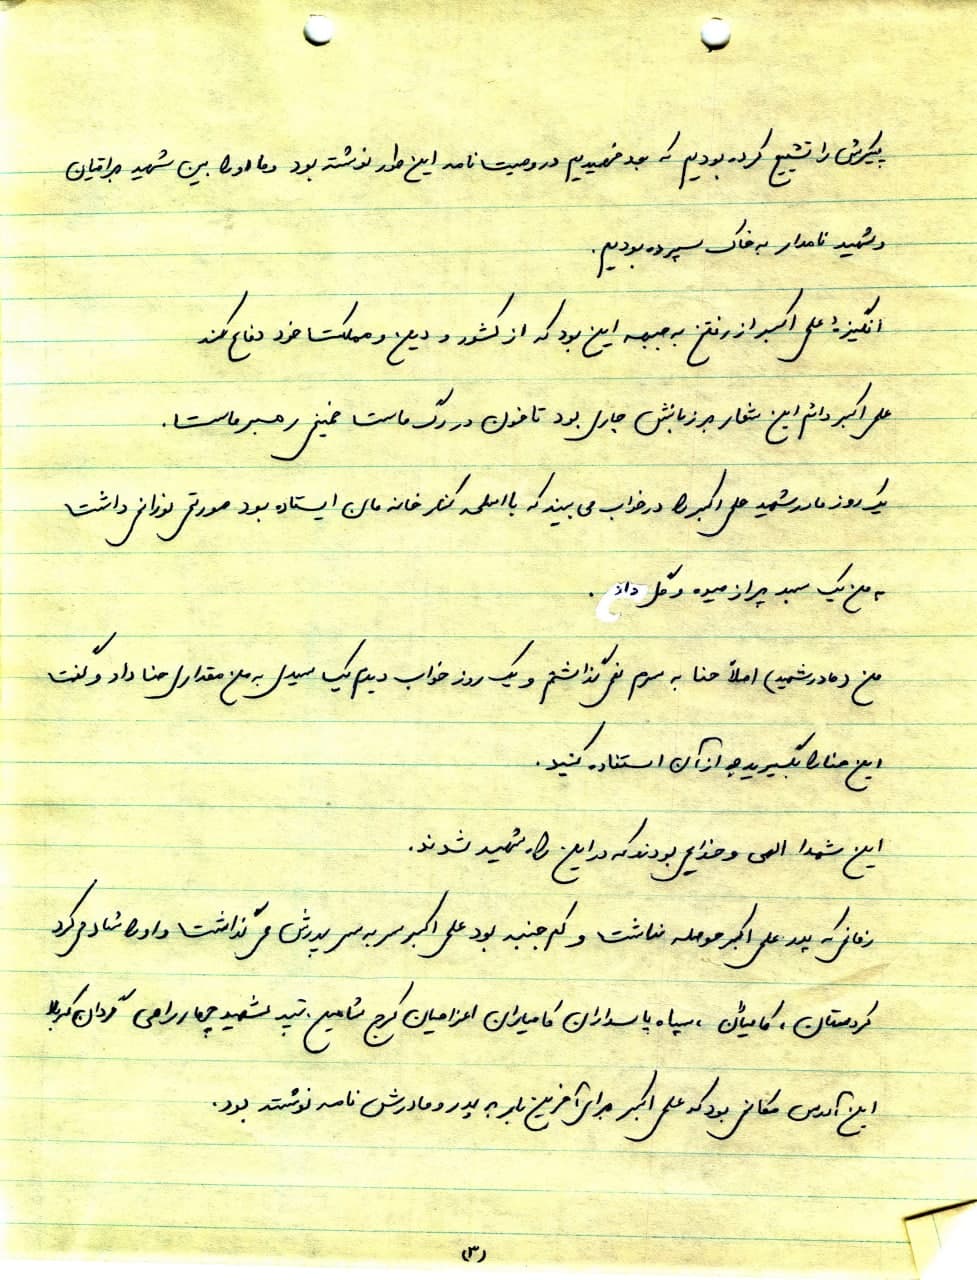 پیکرش را تشییع کرده بودیم که بعد فهمیدیم در وصیت نامه این طور نوشته بود و ما او را بین شهید براقیان
و شهید نامدار به خاک سپرده بودیم.
انگیزهٔ علی اکبر از رفتن به جبهه این بود که از کشور و دین و مملکت خود دفاع کند
علی اکبر دائم این شعار بر زبانش جاری بود تا خون در رگ ماست خمینی رهبر ماست.
یک روز مادر شهید علی اکبر را در خواب می بیند که با اسلحه کنار خانه مان ایستاده بود صورتی نورانی داشت
به من یک سبد پر از میوه و گل داد.
من (مادر شهید) اصلاً حنا به سرم نمی گذاشتم و یک روز خواب دیدم یک سیدی به من مقداری حنا داد و گفت
این حنا را بگیرید و از آن استفاده کنید.
این شهدا الهی و خدایی بودند که در این راه شهید شدند.
زمانی که پدر علی اکبر حوصله نداشت و کم جنبه بود علی اکبر سر به سر پدرش می گذاشت و او را شاد می کرد
کردستان، کامیاران، سپاه پاسداران کامیاران اعزامیان کرج تیپ شهید گردان کربلا
این آدرس مکانی بود که علی اکبر برای آخرین بار به پدر و مادرش نامه نوشته بود.
(۳)